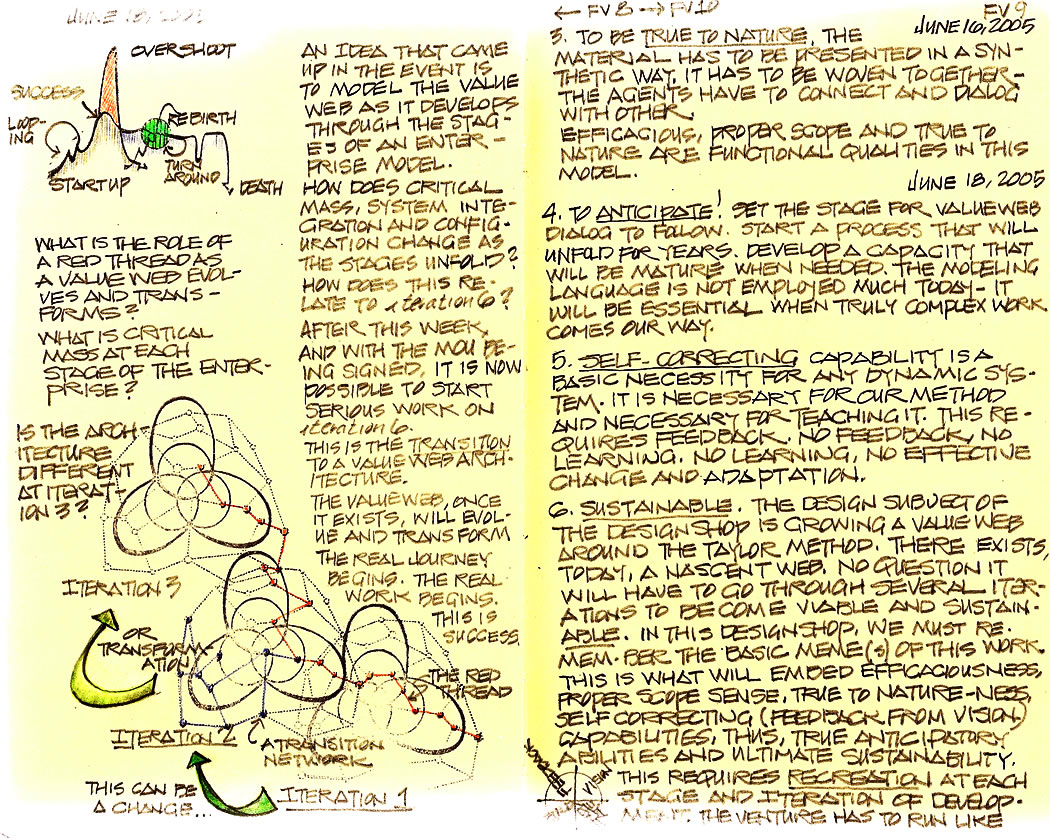 JUNE 18, 2005
OVERSHOOT
SUCCESS
LOOP-
ING
REBIRTH
TURN
AROUND
STARTUP
DEATH
WHAT IS THE ROLE OF
A RED THREAD AS
A VALUE WEB EVOL-
VES AND TRANS-
FORMS?
WHAT IS CRITICAL
MASS AT EACH
STAGE OF THE ENTER-
PRISE?
IS THE ARCH-
ITECTURE
DIFFERENT
AT ITERAT-
ION 3?
ITERATION 3
OR
TRANSFORM-
ATION
ITERATION 2
A TRANSITION
NETWORK
THE RED
THREAD
THIS CAN BE
A CHANGE...
ITERATION 1
AN IDEA THAT CAME
UP IN THE EVENT IS
TO MODEL THE VALUE
WEB AS IT DEVELOPS
THROUGH THE STAG-
ES OF AN ENTER-
PRISE MODEL.
HOW DOES CRITICAL
MASS, SYSTEM INTE-
GRATION AND CONFIG-
URATION CHANGE AS
THE STAGES UNFOLD?
HOW DOES THIS RE-
LATE TO iteration 6?
AFTER THIS WEEK,
AND WITH THE MOU BE-
ING SIGNED, IT IS NOW
POSSIBLE TO START
SERIOUS WORK ON
iteration 6.
THIS IS THE TRANSITION
TO A VALUE WEB ARCH-
ITECTURE.
THE VALUE WEB, ONCE
IT EXISTS, WILL EVOL-
VE AND TRANSFORM
THE REAL JOURNEY
BEGINS. THE REAL
WORK BEGINS.
THIS IS
SUCCESS
← FV 8 → FV10
FV 9
JUNE 16, 2005
3. TO BE TRUE TO NATURE, THE
MATERIAL HAS TO BE PRESENTED IN A SYN-
THETIC WAY, IT HAS TO BE WOVEN TOGETHER-
THE AGENTS HAVE TO CONNECT AND DIALOG
WITH OTHER.
EFFICACIOUS, PROPER SCOPE AND TRUE TO
NATURE ARE FUNCTIONAL QUALITIES IN THIS
MODEL.
JUNE 18, 2005
4. TO ANTICIPATE! SET THE STAGE FOR VALUEWEB
DIALOG TO FOLLOW. START A PROCESS THAT WILL
UNFOLD FOR YEARS. DEVELOP A CAPACITY THAT
WILL BE MATURE WHEN NEEDED. THE MODELING
LANGUAGE IS NOT EMPLOYED MUCH TODAY- IT
WILL BE ESSENTIAL WHEN TRULY COMPLEX WORK
COMES OUR WAY.
5. SELF-CORRECTING CAPABILITY IS A
BASIC NECESSITY FOR ANY DYNAMIC SYS-
TEM. IT IS NECESSARY FOR OUR METHOD
AND NECESSARY FOR TEACHING IT. THIS RE-
QUIRES FEEDBACK. NO FEEDBACK, NO
LEARNING. NO LEARNING, NO EFFECTIVE
CHANGE AND ADAPTATION.
6. SUSTAINABLE. THE DESIGN SUBJECT OF
THE DESIGNSHOP IS GROWING A VALUE WEB
AROUND THE TAYLOR METHOD. THERE EXISTS,
TODAY, A NASCENT WEB. NO QUESTION IT
WILL HAVE TO GO THROUGH SEVERAL ITER-
ATIONS TO BECOME VIABLE AND SUSTAIN-
ABLE. IN THIS DESIGNSHOP, WE MUST RE-
MEM-BER THE BASIC MEME(S) OF THIS WORK.
THIS IS WHAT WILL EMBED EFFICACIOUSNESS,
PROPER SCOPE SENSE, TRUE TO NATURE-NESS,
SELF CORRECTING (FEEDBACK FROM VISION)
CAPABILITIES, THUS, TRUE ANTICIPATORY
ABILITIES AND ULTIMATE SUSTAINABILITY.
VISION
THIS REQUIRES RECREATION AT EACH
STAGE AND ITERATION OF DEVELOP-
MENT. THE VENTURE HAS TO RUN LIKE